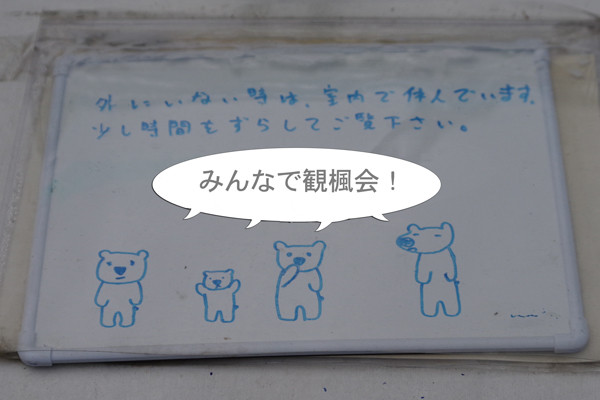 外にいない時は、室内で休んでいます。
少し時間をずらしてご覧下さい。
みんなで観楓会！